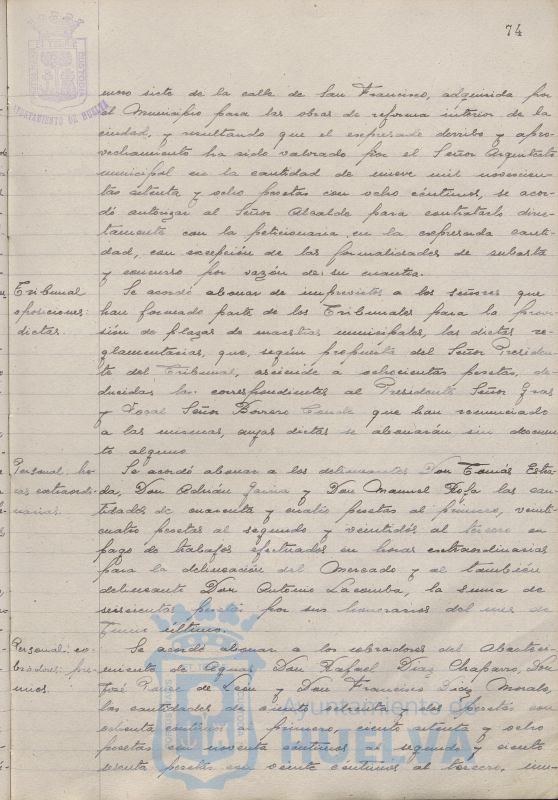 74
AYUNTAMIENTO DE HUELVA
mero siete de la calle de San Francisco, adquirida por
el Municipio para las obras de reforma interior de la
ciudad, y resultando que el expresado derribo y apro-
vechamiento ha sido valorado por el Señor Arquitecto
municipal en la cantidad de nueve mil novecien-
tas setenta y ocho pesetas con ocho céntimos, se acor-
dó autorizar al Señor Alcalde para contratarlo direc-
tamente con la peticionaria en la expresada canti-
dad, con excepción de las formalidades de subasta
y concurso por razón de su cuantía.
Tribunal
oposiciones:
dietas.
Se acordó abonar de imprevistos a los señores que
han formado parte de los Tribunales para la provi-
sión de plazas de maestras municipales, las dietas re-
glamentarias, que, según propuesta del Señor Presiden-
te del Tribunal, asciende a ochocientas pesetas, de-
ducidas las correspondientes al Presidente Señor
y Vocal Señor Borrero Conde que han renunciado
a las mismas, cuyas dietas se abonarán sin descuen-
to alguno.
Personal: ho-
ras extraordi-
narias.
Se acordó abonar a los delineantes Don Tomás Estra-
da, Don Adrián y Don Manuel Rofa las can-
tidades de cuarenta y cuatro pesetas al primero, veinti-
cuatro pesetas al segundo y veintidós al tercero en
pago de trabajos efectuados en horas extraordinarias
para la delineación del Mercado y al también
delineante Don Antonio Lacomba, la suma de
seiscientas pesetas por sus honorarios del mes de
Junio último.
Personal: co-
bradores: pre-
mios.
Se acordó abonar a los cobradores del Abasteci-
miento de Aguas Don Rafael Díaz Chaparro, Don
José Ponce de León y Don Francisco Díaz Morato,
las cantidades de ciento y dos pesetas con
ochenta céntimos al primero, ciento setenta y ocho
pesetas con noventa céntimos al segundo y ciento
sesenta pesetas con veinte céntimos al tercero, im-
Ayuntamiento de
HUELVA